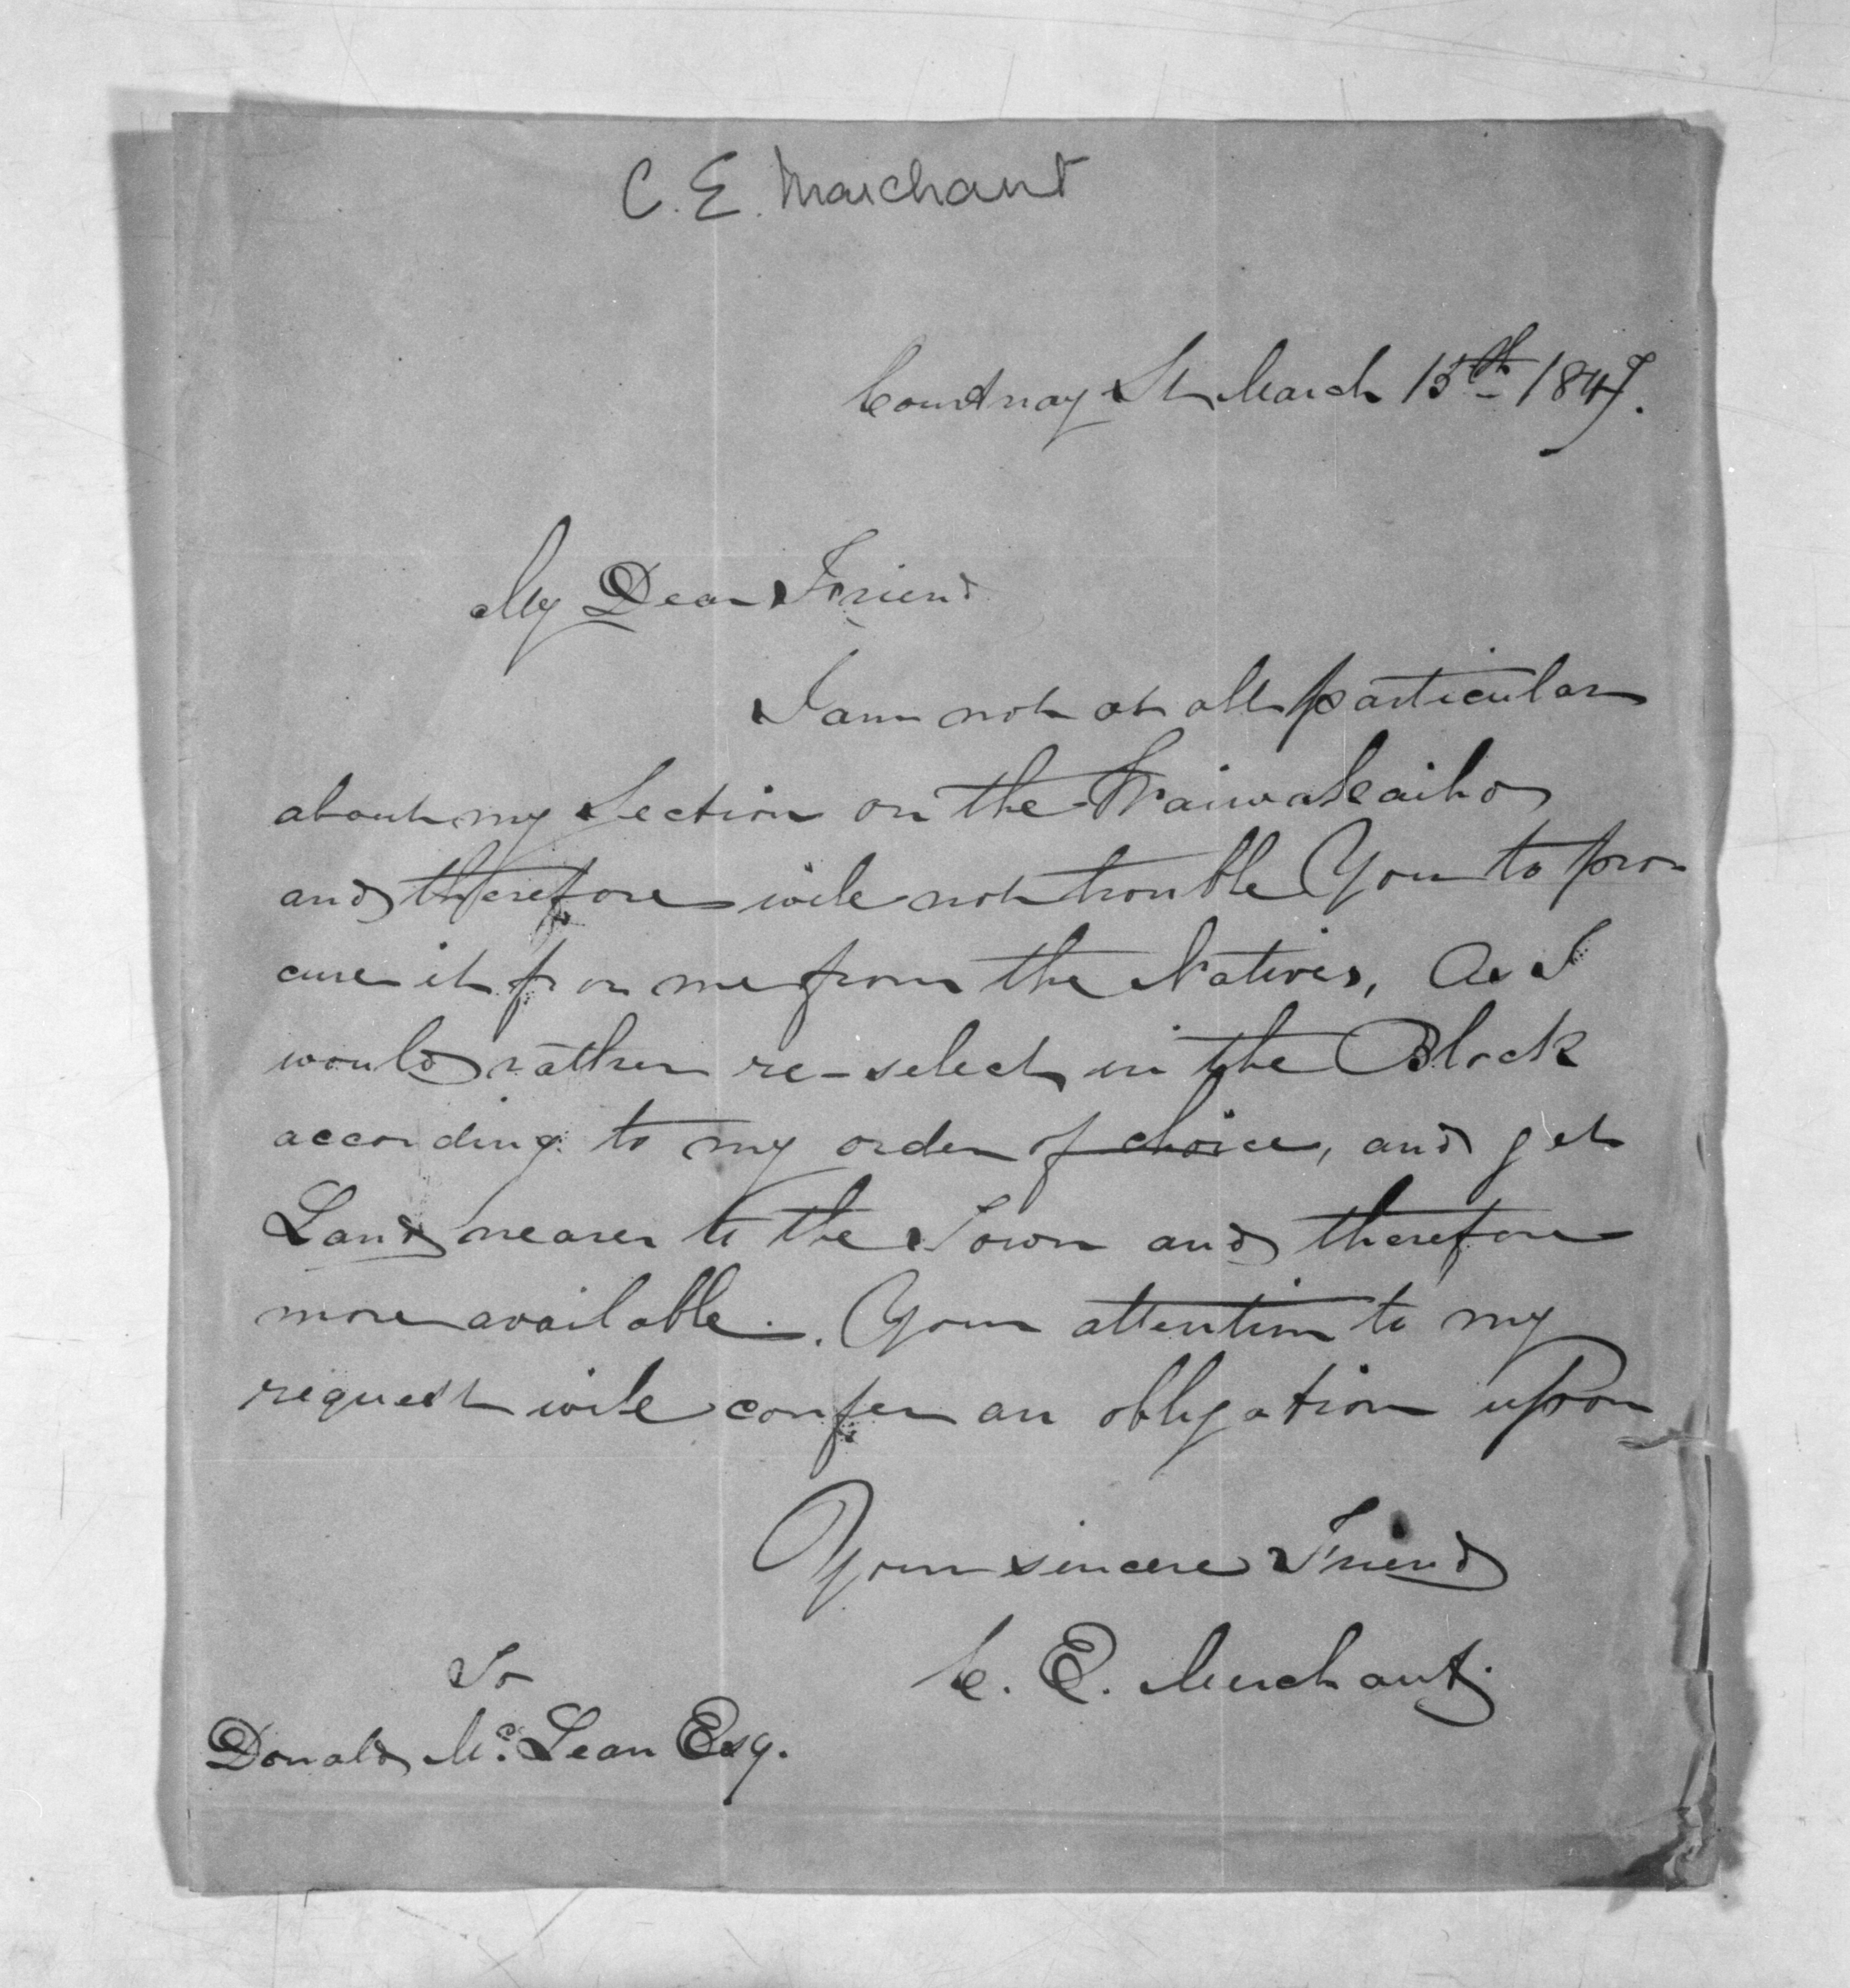 C. E. Marchant
Courtnay St March 15th 1847.
My Dear Friend
I am not at all particular
about my Section on the Waiwakaiho
and therefore will not trouble You to pro
cure it for me from the Natives, As I
would rather re-select in the Block
according to my order of choice, and get
Land nearer to the Town and therefore
more available. Your attention to my
request will confer an obligation upon
Your sincere Friend
C. E. Merchant.
To
Donald McLean Esq.